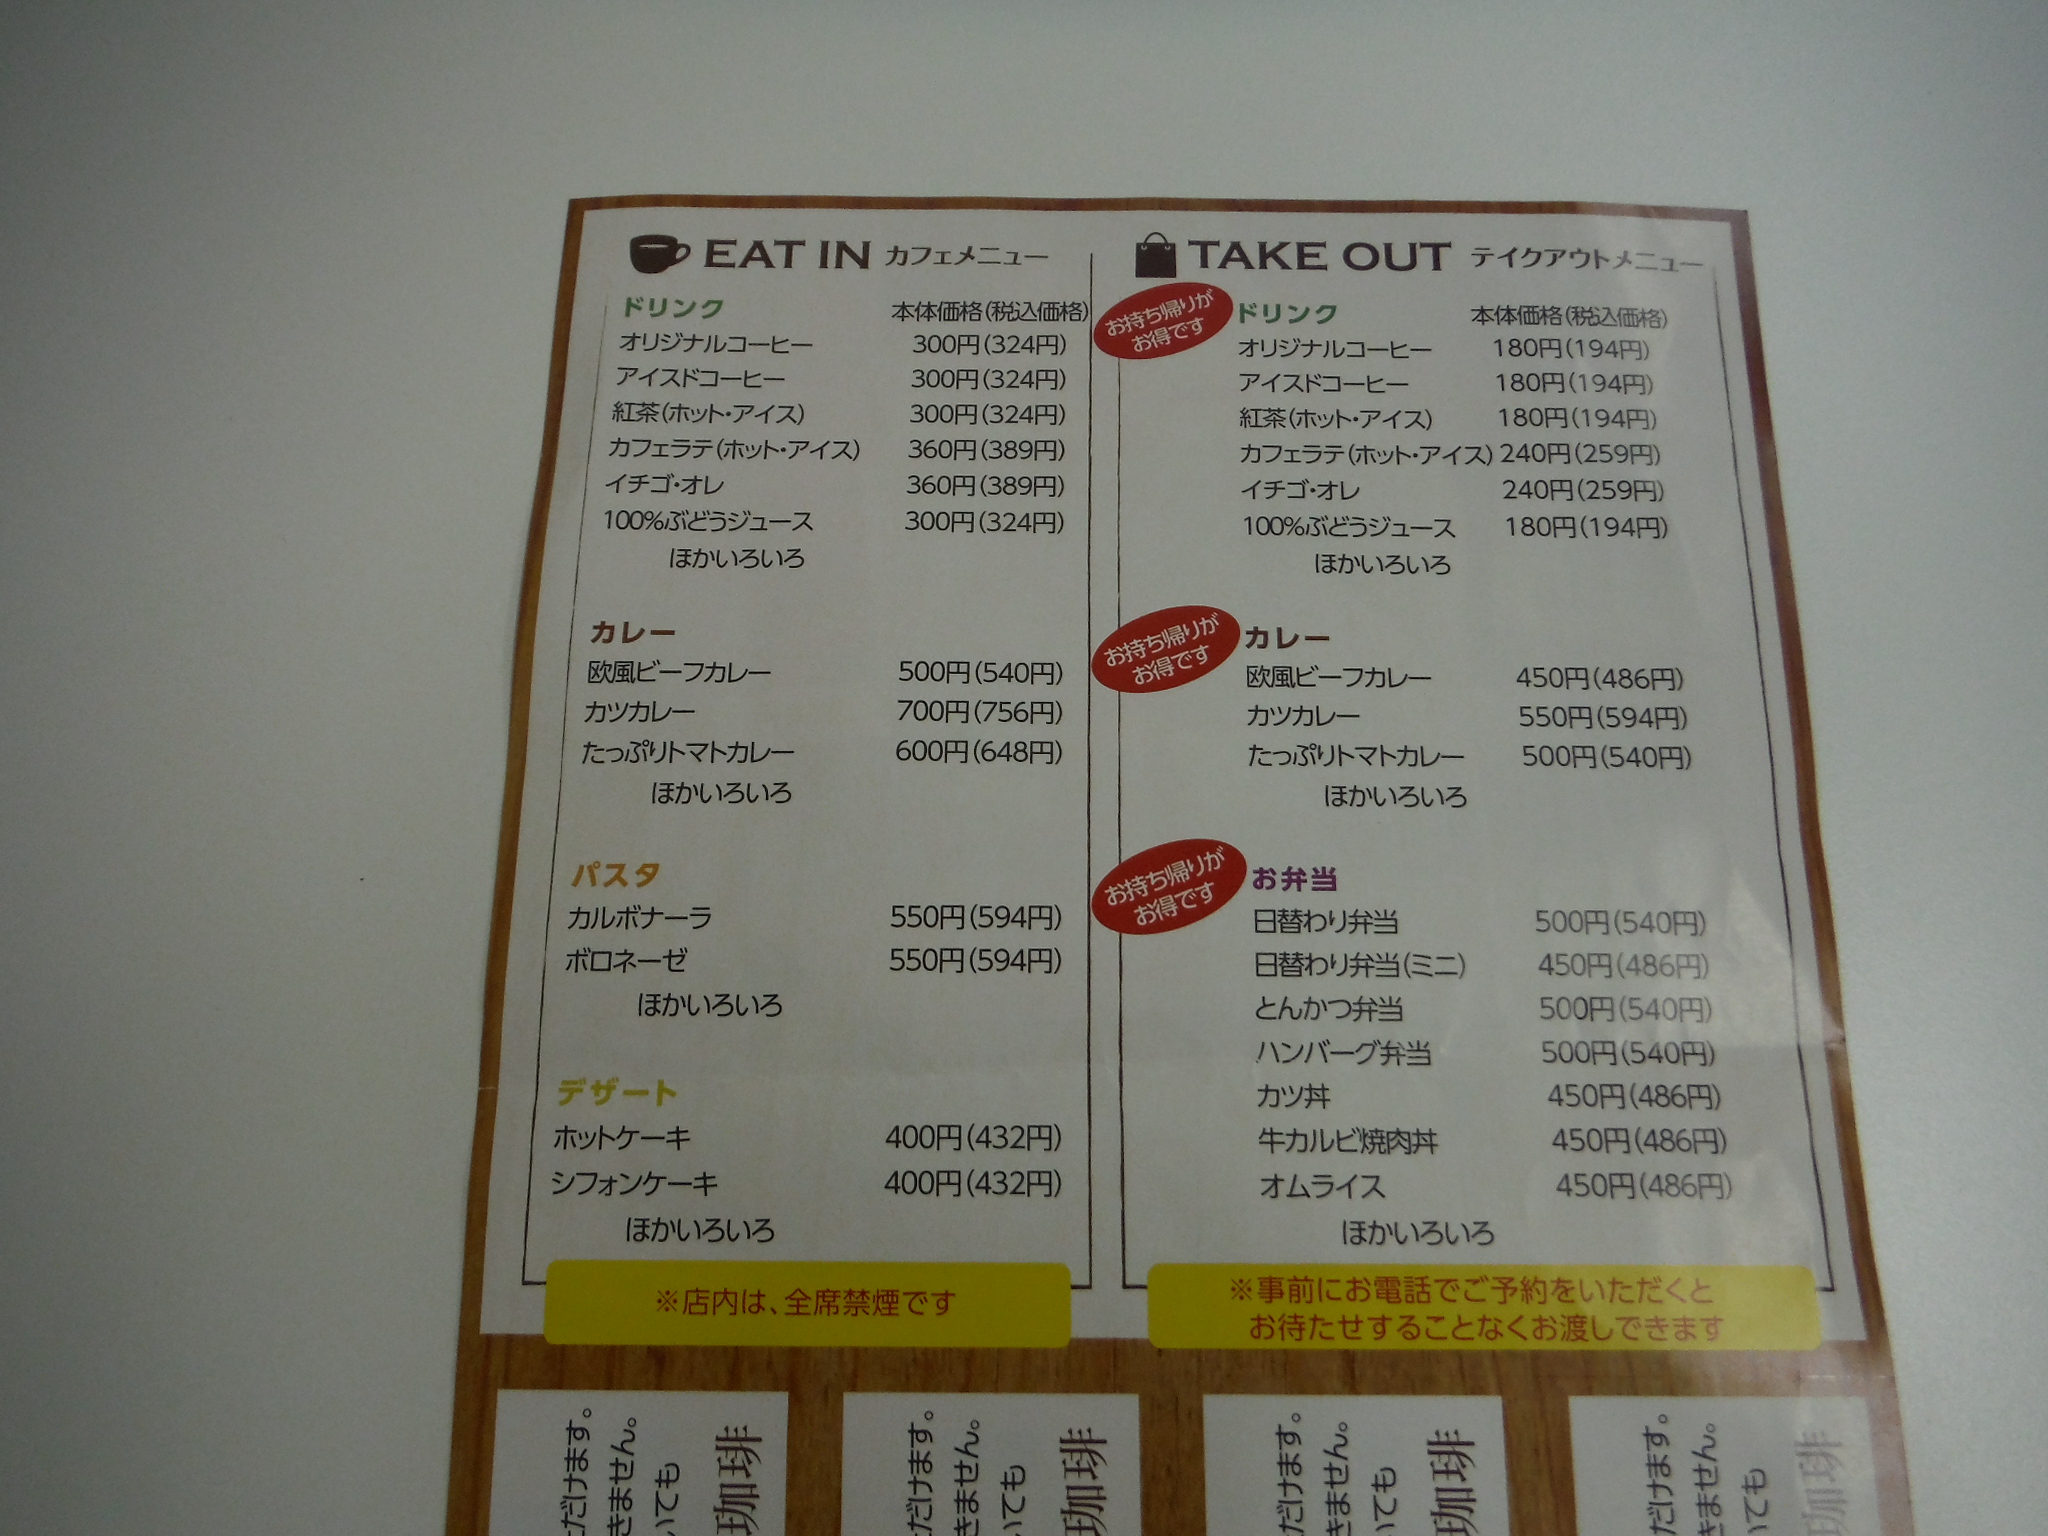 EAT IN カフェメニュー
ドリンク 本体価格(税込価格)
オリジナルコーヒー 300円(324円)
アイスドコーヒー 300円(324円)
紅茶(ホット・アイス) 300円(324円)
カフェラテ(ホット・アイス) 360円(389円)
イチゴ・オレ 360円(389円)
100%ぶどうジュース 300円(324円)
ほかいろいろ
カレー
欧風ビーフカレー 500円(540円)
カツカレー 700円(756円)
たっぷりトマトカレー 600円(648円)
ほかいろいろ
パスタ
カルボナーラ 550円(594円)
ボロネーゼ 550円(594円)
ほかいろいろ
デザート
ホットケーキ 400円(432円)
シフォンケーキ 400円(432円)
ほかいろいろ
※店内は、全席禁煙です
TAKE OUT テイクアウトメニュー
お持ち帰りが
お得です
ドリンク 本体価格(税込価格)
オリジナルコーヒー 180円(194円)
アイスドコーヒー 180円(194円)
紅茶(ホット・アイス) 180円(194円)
カフェラテ(ホット・アイス) 240円(259円)
イチゴ・オレ 240円(259円)
100%ぶどうジュース 180円(194円)
ほかいろいろ
お持ち帰りが
お得です
カレー
欧風ビーフカレー 450円(486円)
カツカレー 550円(594円)
たっぷりトマトカレー 500円(540円)
ほかいろいろ
お持ち帰りが
お得です
お弁当
日替わり弁当 500円(540円)
日替わり弁当(ミニ) 450円(486円)
とんかつ弁当 500円(540円)
ハンバーグ弁当 500円(540円)
カツ丼 450円(486円)
牛カルビ焼肉丼 450円(486円)
オムライス 450円(486円)
ほかいろいろ
※事前にお電話でご予約をいただくと
お待たせすることなくお渡しできます
だけます。
きません。
いても
珈琲
だけます。
きません。
いても
珈琲
だけます。
きません。
いても
珈琲
だけます。
きません。
いても
珈琲